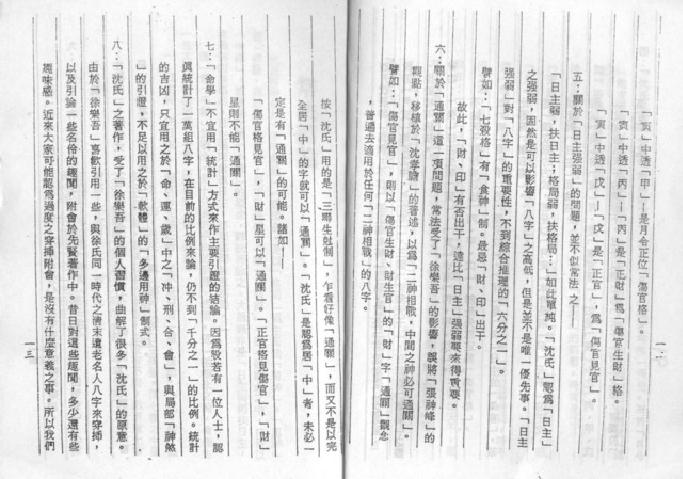 「寅」中透「甲」—是月令正位「傷官格」。
「寅」中透「丙」—「丙」是「正財」爲「傷官生財」格。
「寅」中透「戊」—「戊」是「正官」，爲「傷官見官」。
五：關於「日主强弱」的問題，並不似常法之—
「日主弱，扶日主；格局弱，扶格局…」如此單純。「沈氏」認爲「日主」
之强弱，固然是可以影響「八字」之高低，但是並不是唯一優先事。「日主
强弱」對「八字」的重要性，不到綜合推理的「六分之一」。
譬如：「七殺格」有「食神」制。最忌「財、印」出干。
故此，「財、印」有否出干，遠比「日主」强弱要來得重要。
六：關於「通關」這一項問題，常法受了「徐樂吾」的影響，誤將「張神峰」的
觀點，移植於「沈孝瞻」的著述，以爲「二神相戰，中間之神必可通關」。
譬如：「傷官見官」，則以「傷官生財、財生官」的「財」字「通關」觀念
，普遍去適用於任何「二神相戰」的八字。
按「沈氏」用的是「三綱生尅制」，乍看好像「通關」，而又不是以完
全居「中」的字就可以「通關」。「沈氏」是認爲居「中」者，未必一
定是有「通關」的可能。諸如—
「傷官格見官」，「財」星可以「通關」。「正官格見傷官」，「財」
星則不能「通關」。
七：「命學」不宜用「統計」方式來作主要引證的結論。因爲設若有一位人士，認
眞統計了一萬組八字，在目前的比例來論，仍不到「千分之一」的比例。統計
的吉凶，只宜用之於「命、運、歲」中之「冲、刑、合、會」，與局部「神煞
」的引證，不足以用之於「軟體」的「多邊用神」制式。
八：「沈氏」之著作，受了「徐樂吾」的個人習慣，曲解了很多「沈氏」的原意。
由於「徐樂吾」喜歡引用一些，與徐氏同一時代之清末遺老名人八字來穿揷，
以及引論一些名伶的趣聞，附會於先賢著作中。昔日對這些趣聞，多少還有些
趣味感。近來大家可能認爲過度之穿揷附會，是沒有什麼意義之事。所以我們
一三